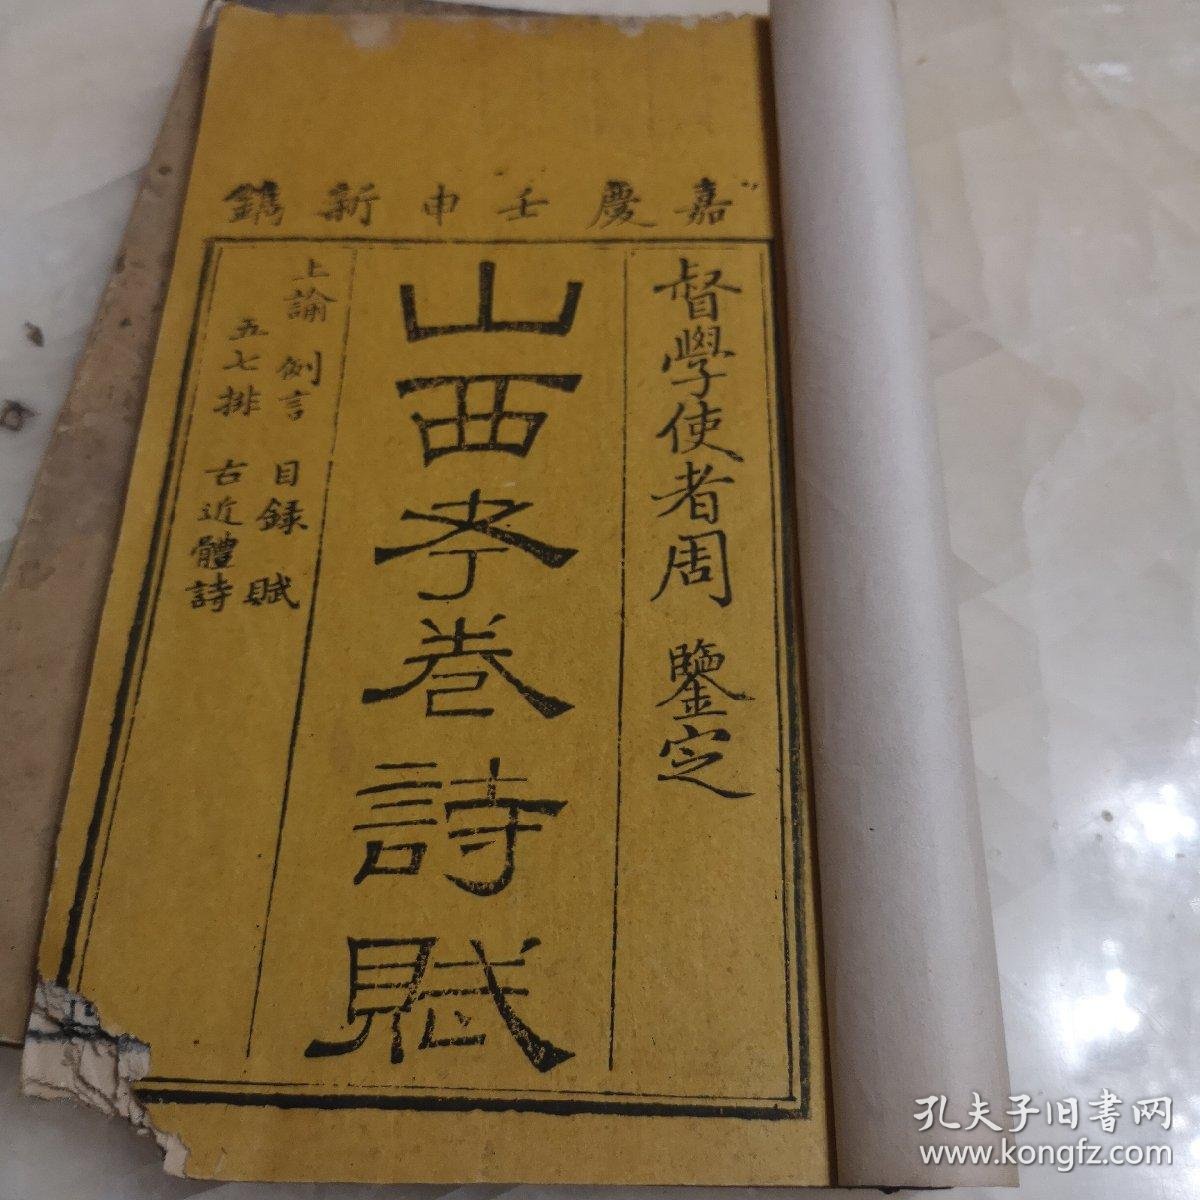 嘉慶壬申新鐫
督學使者周 鑒定
山西考卷詩賦
上諭 例言 目録 賦
五七排 古近體詩
孔夫子旧書网
www.kongfz.com